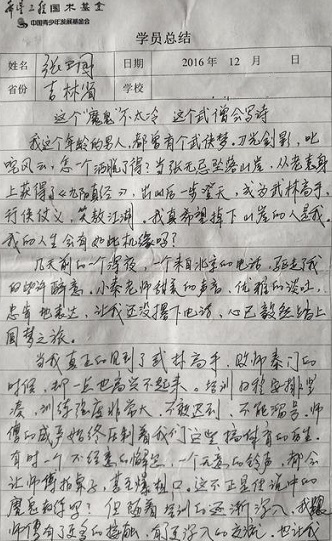 希望工程国术基金
中国青少年发展基金会
学员总结
姓名 张 日期 2016年12月 日
省份 吉林省 学校
这个“魔鬼”不太冷 这个武僧会写诗
我这个年龄的男人，都曾有个武侠梦。刀光剑影，叱
咤风云，怎一个洒脱了得？当张无忌坠落山崖，从老袁身
上获得了《九阳真经》，出山后一步登天，成为武林高手，
行侠仗义，笑敖江湖。我真希望掉下山崖的人是我，
我的人生会有如此机缘吗？
几天前的一个深夜，一个来自北京的电话，驱走了我
的些许醉意，小秦老师甜美的声音，优雅的谈吐，
患者地表达，让我还没撂下电话，心已数经踏上
圆梦之旅。
当我真正的见到了武林高手，败师秦门的
时候，却一点也高兴不起来。培训的程安排紧
凑，训练强度非常大，不敢迟到，不能偷
傅的威严始终压制着我们这些搞体育的
有时一个不经意的，一个无意的铃声，都会
让师傅拍桌子，甚至爆粗口。这不正是传说中的
魔鬼 吗？但随着培训的逐渐深入，我跟
师傅有了更多的接触，有了深入的交流，也让我